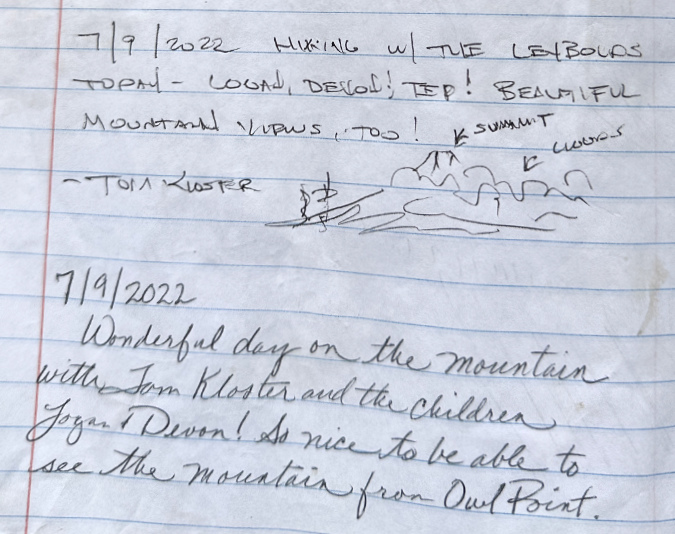 7/9/2022 HIKING W/ THE LEYBOLDS
TODAY - LOGAN, DEVON! TED! BEAUTIFUL
MOUNTAIN VIEWS, TOO!
SUMMIT
CLOUDS
- TOM KLOSTER
7/9/2022
Wonderful day on the mountain
with Tom Kloster and the children
Logan & Devon! So nice to be able to
see the mountain from Owl Point.